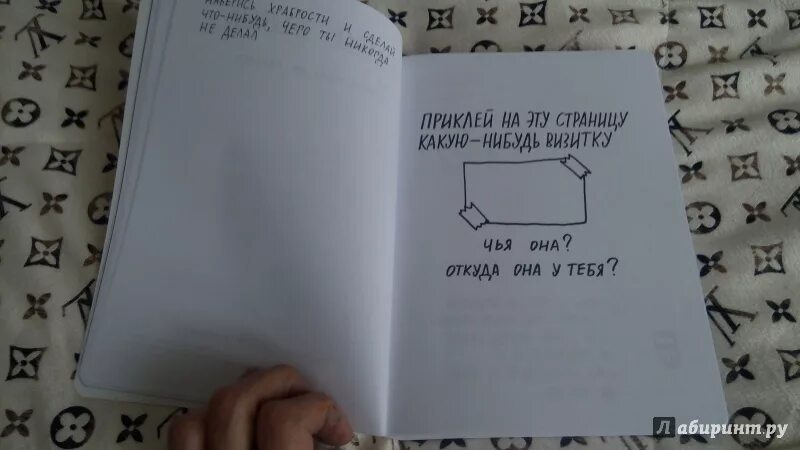 НАБЕРИСЬ ХРАБРОСТИ И СДЕЛАЙ
ЧТО-НИБУДЬ, ЧЕГО ТЫ НИКОГДА
НЕ ДЕЛАЛ
ПРИКЛЕЙ НА ЭТУ СТРАНИЦУ
КАКУЮ-НИБУДЬ ВИЗИТКУ
ЧЬЯ ОНА?
ОТКУДА ОНА У ТЕБЯ?
Лабиринт.ру